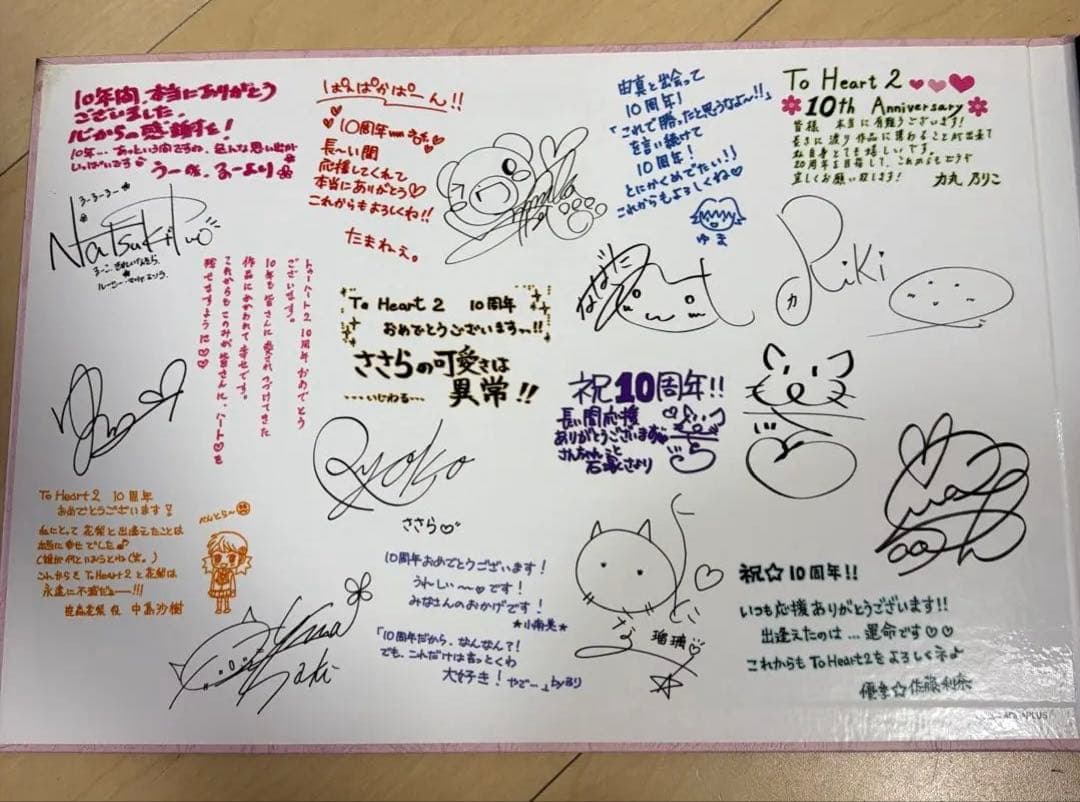 10年間、本当にありがとう
ございました。
心からの感謝を!
10年…あっという間ですね。色んな思い出が
いっぱいです♪
うーへ。るーより
るーるるー
Natsuki
ぱんぱかぱーん!!
♡10周年
長〜い間
応援してくれて
本当にありがとう♡
これからもよろしくね!!
たまねぇ。
由真と出会って
10周年!
「これで勝ったと思うなよ〜!!」
を言い続けて
10周年!
とにかくめでたい!!
これからもよろしくね♡
ゆま
To Heart 2
10th Anniversary
皆様 本当に有難うございます!
長きに渡り作品に携わることが出来て
私自身とても嬉しいです。
20周年を目指して、これからもどうぞ
宜しくお願い致します!
力丸 乃りこ
Riki
力
トゥーハート2 10周年おめでとう
ございます。
10年も皆さんに愛されつづけてきた
作品にかかわれて幸せです。
これからもこのみが皆さんに、ハート♡を
届せますように♡♡
To Heart 2 10周年
おめでとうございますっ!!
ささらの可愛さは
異常!!
…いじわる…
Ryoko
ささら♡
祝10周年!!
長い間応援
ありがとうございます
さんちゃんこと
石塚さより
To Heart 2 10周年
おめでとうございます!
私にとって花梨と出逢えたことは
本当に幸せでした♪
(誰が何といおうとね(笑。)
これからも To Heart 2 と花梨は
永遠に不滅だよー!!!
笹森花梨 役 中島沙樹
Saki
10周年おめでとうございます!
うれしぃ〜〜♥です!
みなさんのおかげです!
★小南美★
「10周年だから、なんなんて?!
でも、これだけは言っとくわ
大好き!やで…」by るり
瑠璃♡
祝☆10周年!!
いつも応援ありがとうございます!!
出逢えたのは…運命です♡♡
これからも To Heart 2 をよろしくネ♪
優季☆佐藤利奈
AQUAPLUS